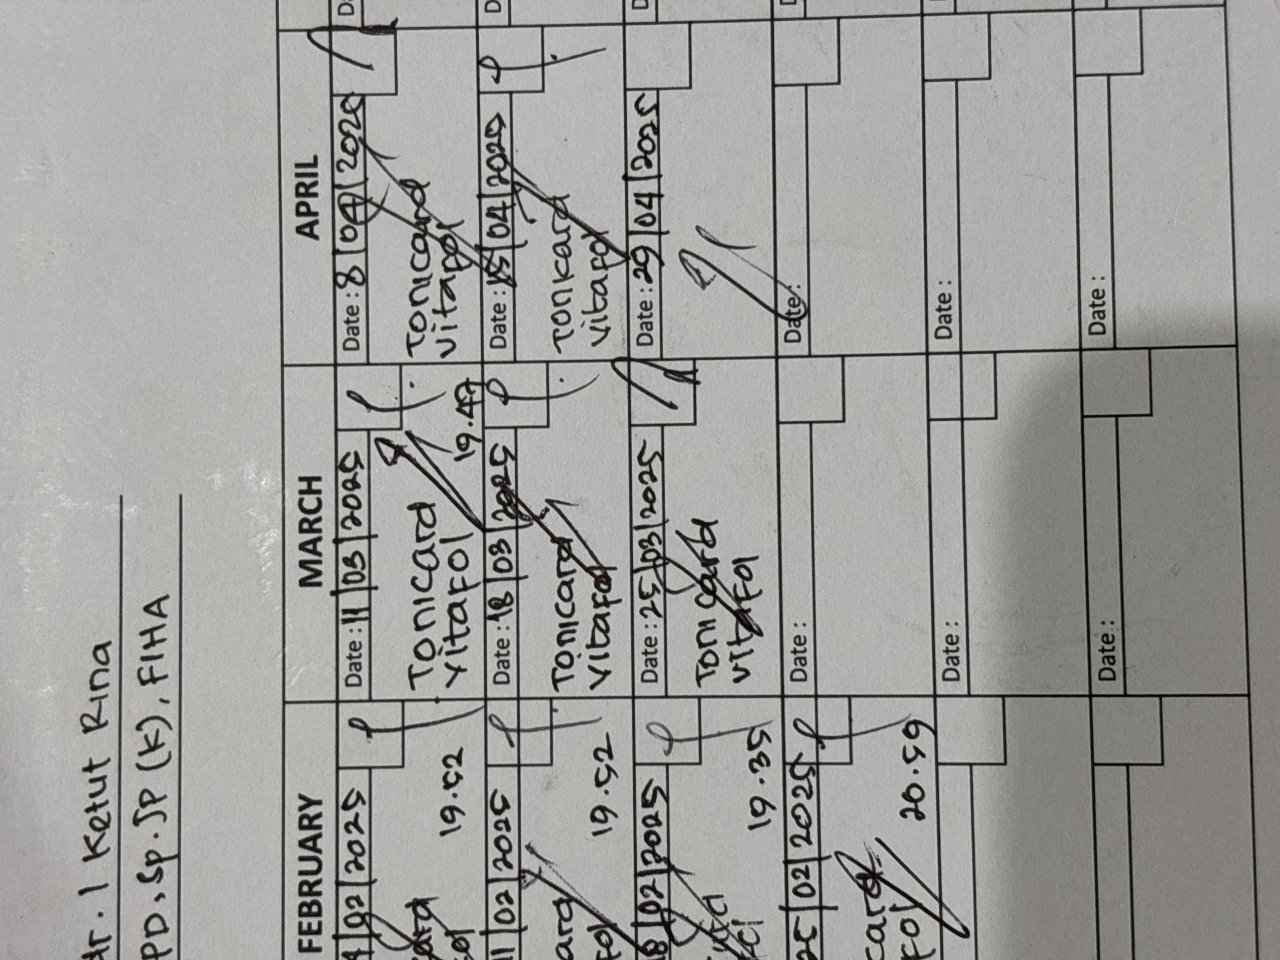 dr. I Ketut Rina
PD, Sp. JP (K), FIHA
FEBRUARY
02/2025
19.52
11/02/2025
19.52
18/02/2025
19.35
25/02/2025
20.59
MARCH
Date: 11/03/2025
Tonicard
Vitafol
19.47
Date: 18/03/2025
Tonicard
Vitafol
Date: 25/03/2025
Tonicard
Vitafol
Date:
Date:
Date:
APRIL
Date: 8/04/2025
Tonicard
Vitafol
Date: 15/04/2025
Tonicard
Vitafol
Date: 29/04/2025
Date:
Date:
Date: